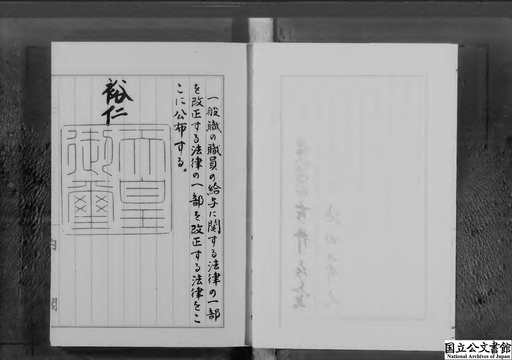 一般職の職員の給与に関する法律の一部
を改正する法律の一部を改正する法律をこ
こに公布する。
裕仁
天皇
御璽
国立公文書館
National Archives of Japan